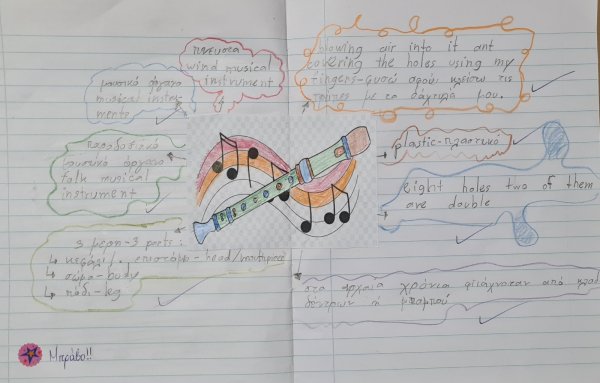 πνευστά
wind musical
instrument
blowing air into it ant
covering the holes using my
fingers-φυσώ αφού κλείσω τις
τρύπες με τα δάχτυλά μου.
μουσικό όργανο
musical instru-
ments
παραδοσιακό
μουσικό όργανο
falk musical
instrument
plastic-πλαστικό
eight holes two of them
are double
3 μέρη-3 parts:
κεφάλι/ επιστόμιο-head/mouthpiece
σώμα-body
πόδι-leg
στα αρχαία χρόνια φτιάχνοταν από κλαδί
δέντρων ή μπαμπού
Μπράβο!!